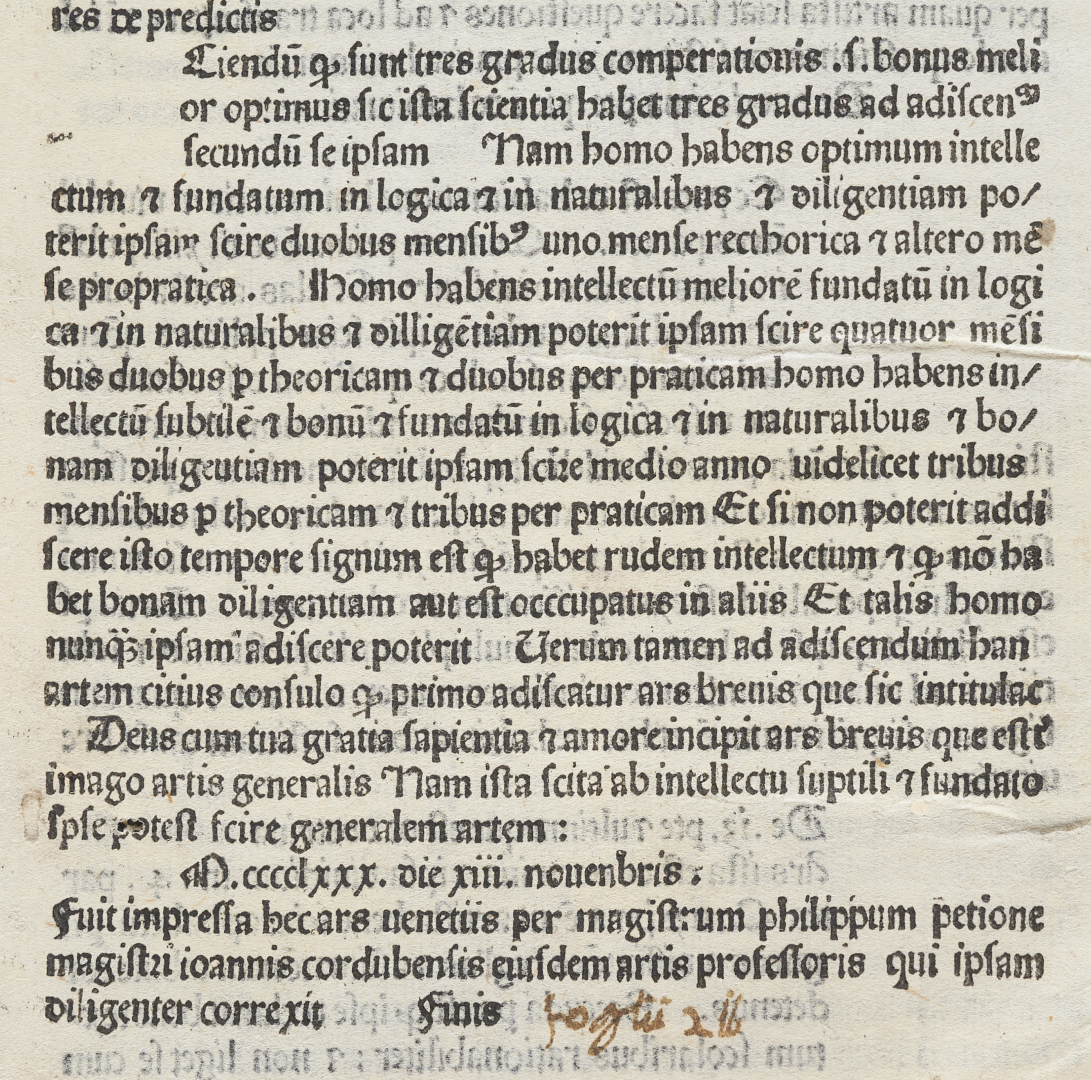 res de predictis
Ciendū ꝙ sunt tres gradus comperationis .s. bonus meli
or optimus sic ista scientia habet tres gradus ad adiscenꝰ
secundū se ipsam Nam homo habens optimum intelle
ctum ⁊ fundatum in logica ⁊ in naturalibus ⁊ diligentiam po/
terit ipsam scire duobus mensibꝰ uno mense recthorica ⁊ altero mē
se propratica . Homo habens intellectū meliorē fundatū in logi
ca ⁊ in naturalibus ⁊ dilligētiam poterit ipsam scire quatuor mēsi
bus duobus p theoricam ⁊ duobus per praticam homo habens in/
tellectū subtilē ⁊ bonū ⁊ fundatū in logica ⁊ in naturalibus ⁊ bo/
nam diligeutiam poterit ipsam scire medio anno uidelicet tribus
mensibus p theoricam ⁊ tribus per praticam Et si non poterit addi
scere isto tempore signum est ꝙ habet rudem intellectum ⁊ ꝙ nō ha
bet bonam diligentiam aut est occcupatus in aliis Et talis homo
nunꝙ̄ ipsam adiscere poterit Uerum tamen ad adiscendum han
artem citius consulo ꝙ primo adiscatur ars breuis que sic intitulat̄
Deus cum tua gratia sapientia ⁊ amore incipit ars breuis que est
imago artis generalis Nam ista scita ab intellectu suptili ⁊ fundato
Ipse potest scire generalem artem :
M.cccclxxx. die xiii. nouenbris :
Fuit impressa hec ars uenetiis per magistrum philippum petione
magistri ioannis cordubensis eiusdem artis professoris qui ipsam
diligenter correxit Finis foglii 2